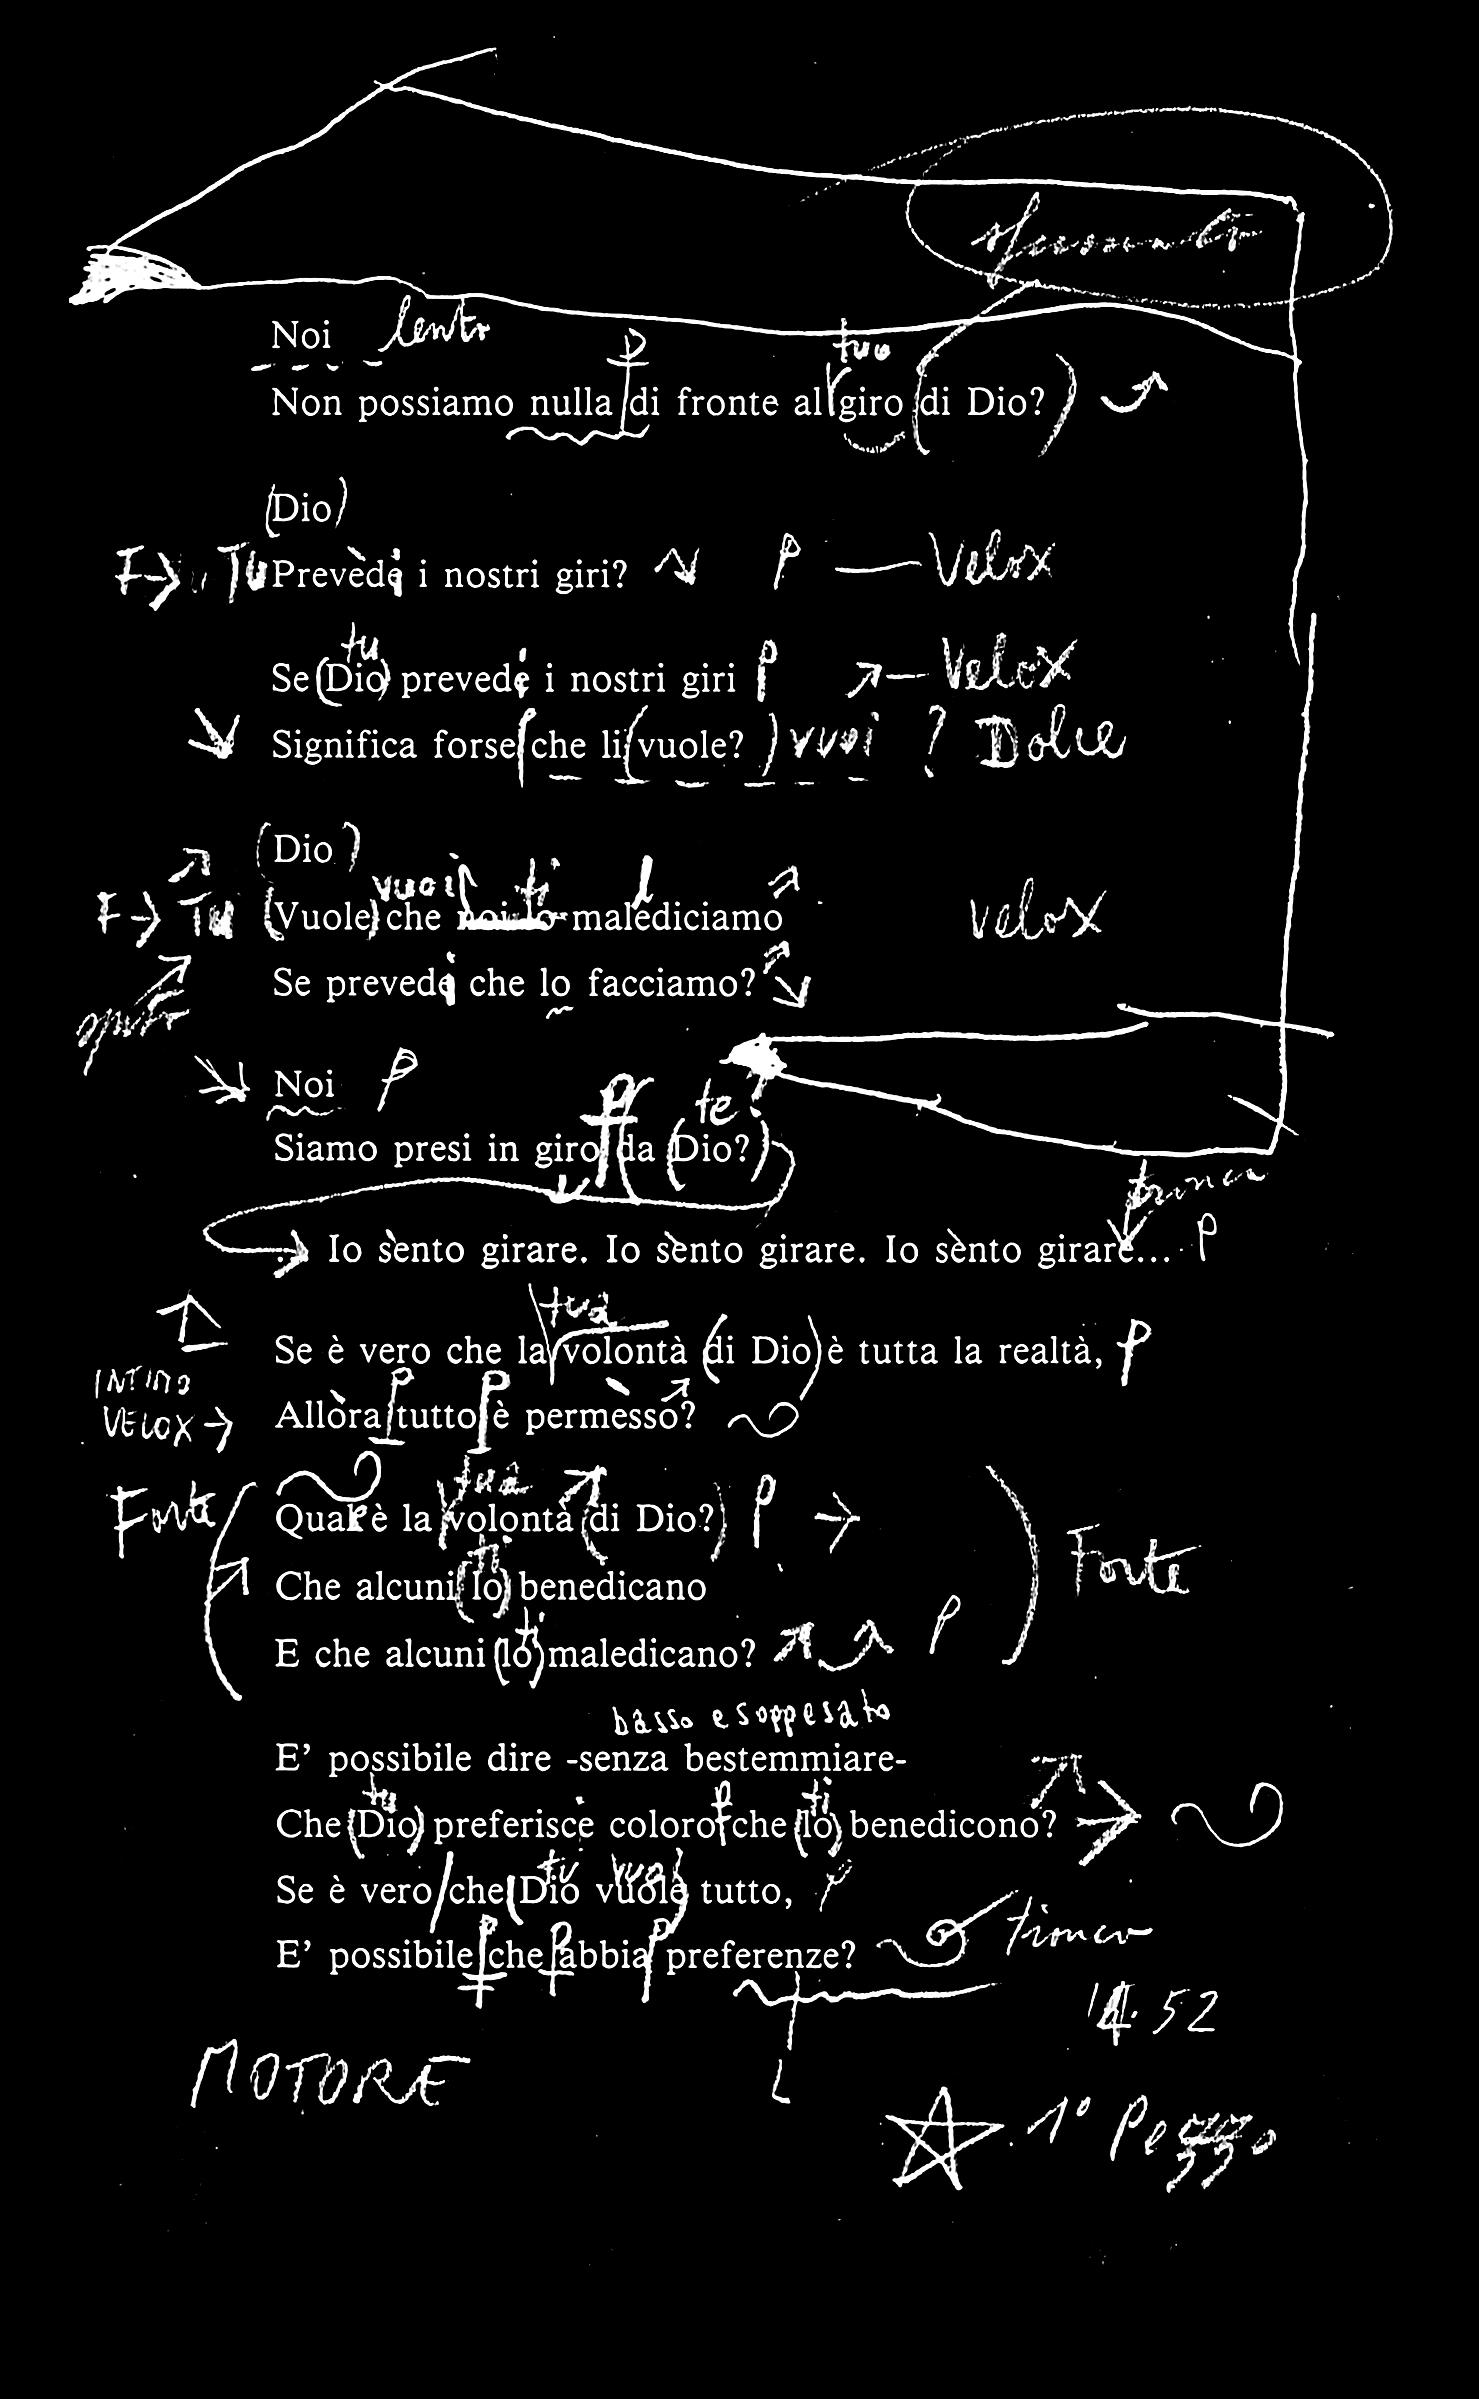 Noi lento
tuo
Non possiamo nulla di fronte al giro (di Dio?)
(Dio)
F→ TU Prevèdi i nostri giri? P — Velox
tu
Se (Dio) prevedi i nostri giri P — Velox
Significa forse che li (vuole?) vuoi ? Dolce
(Dio)
vuoi ti
F→ TU (Vuole) che noi lo malediciamo velox
Se prevedi che lo facciamo?
Noi P
te?
Siamo presi in giro da (Dio?)
Io sènto girare. Io sènto girare. Io sènto girare... P
tua
Se è vero che la volontà (di Dio) è tutta la realtà, P
INTIMO
P P
VELOX → Allòra tutto è permèsso?
tua
Forte Qual è la volontà (di Dio?) P →
ti
Che alcuni (lo) benedicano Forte
ti
E che alcuni (lo) maledicano? P
basso e soppesato
E' possibile dire -senza bestemmiare-
tu P ti
Che (Dio) preferisce coloro che (lo) benedicono?
tu vuoi
Se è vero che (Dio vuole) tutto, P
P P P
E' possibile che abbia preferenze?
14.52
MOTORE L
1° Pezzo